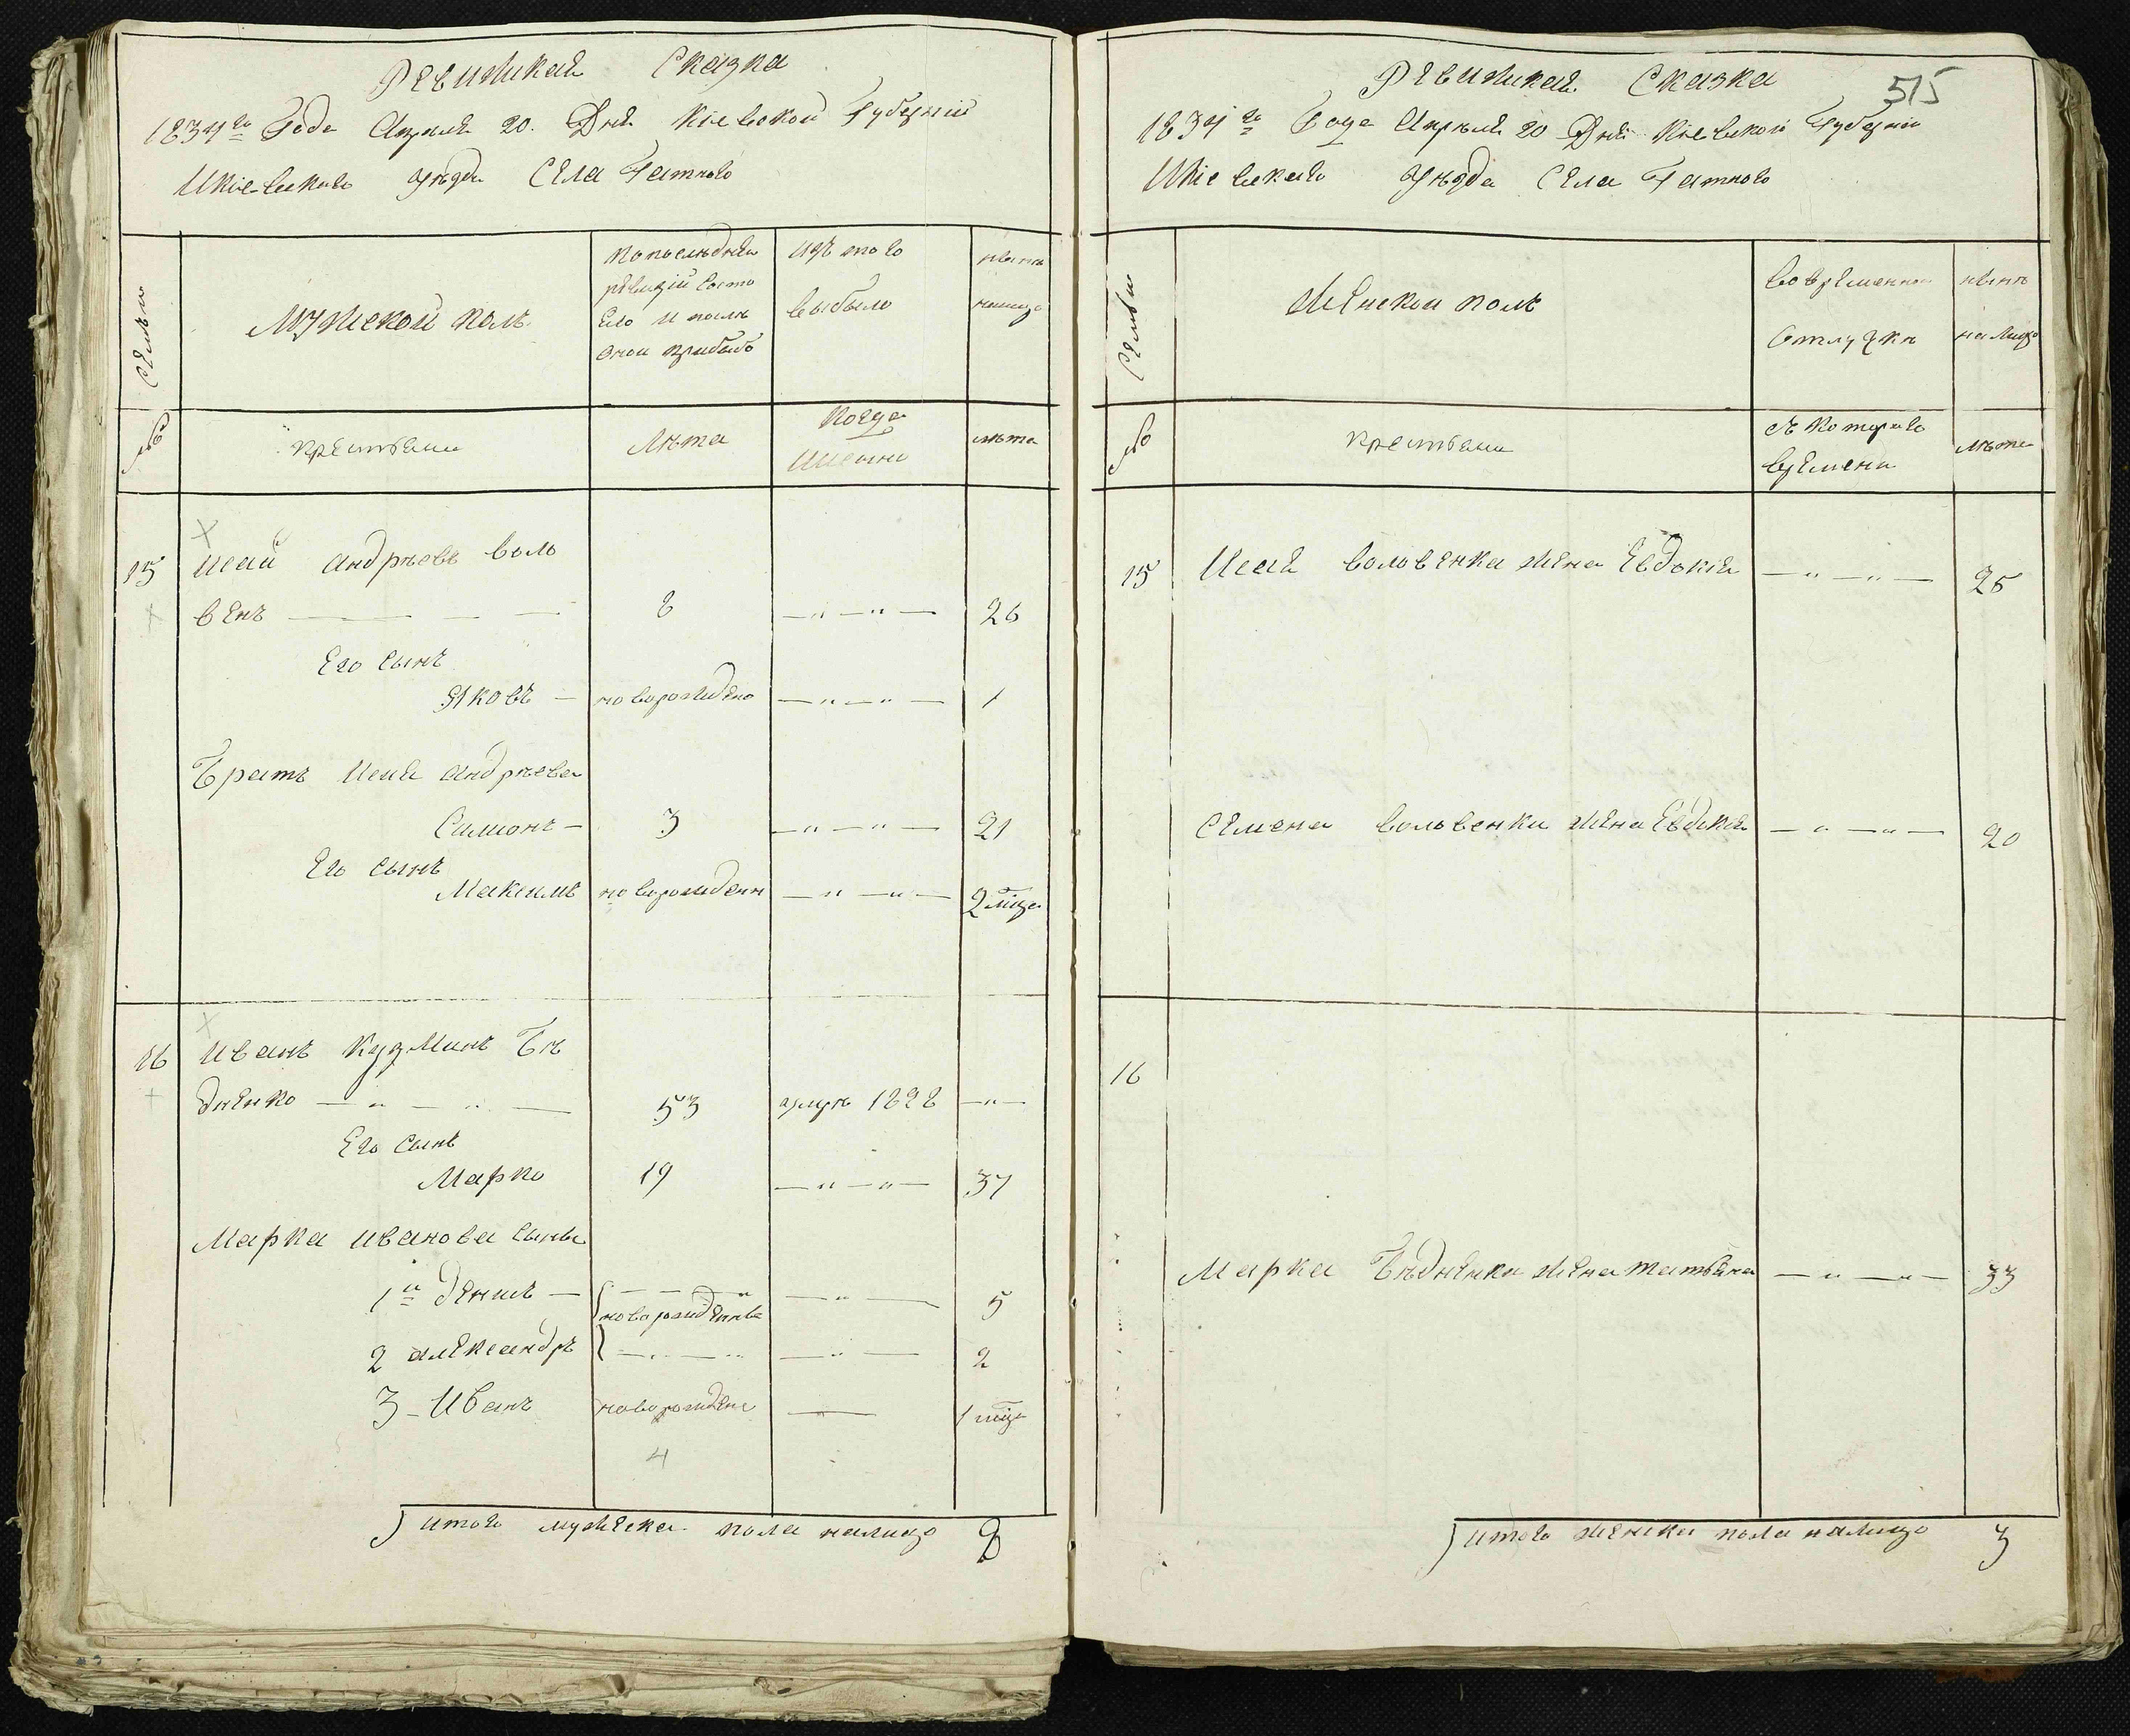 Ревижская Сказка
1834го Года Апреля 20. Дня Кіевской Губерніи
Икіевскаго уѣзда Села Гатнаго
Семьи
Мужской полъ
Попослѣдней
ревизіи состо
яло и послѣ
оной прибыло
Изъ того
выбыло
нынѣ
налицо
№
крестьяни
Лѣта
Когда
Именно
лѣта
15 Исай Андрѣевъ Воло
венъ 8 — " — " — 26
Его сынъ
Яковъ — новорожденъ — " — " — 1
Братъ Исая Андрѣева
Симионъ — 3 — " — " — 21
Его сынъ
Максимъ новорожденн — " — " — 2 мца
16 Иванъ Кузминъ Бѣ
дненко — " — " — 53 умре 1828 — " —
Его сынъ
Марко 19 — " — " — 37
Марка Иванова сыны
1й Денисъ — новорожденны — " — 5
2 Александръ — " — " — " — 2
3 - Иванъ новорожденъ — 1 мца
4
Итого мужеска пола налицо 8
515
Ревижская Сказка
1834го Года Апреля 20 Дня Кіевской Губерніи
Икіевскаго уѣзда Села Гатнаго
Семьи
Женской полъ
Вовременной
Отлучкѣ
нынѣ
налицо
№
крестьяни
съ котораго
времени
лѣта
15 Исая Воловенка жена Евдокія — " — " — 25
Семена Воловенки жена Евдокія — " — " — 20
16
Марка Бѣдненки жена Татьяна — " — " — 33
Итого женска пола налицо 3